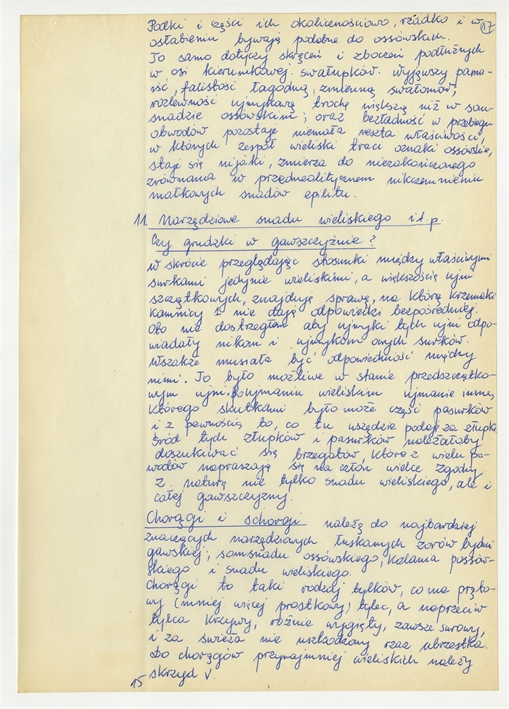 17
Podki i części ich okolicznościowo, rzadko i w
osłabieniu bywają podobne do ossówskich.
To samo dotyczy skręceń i zboczeń podłużnych
w osi kierunkowej swałupków. Wyjąwszy pama-
ść, falistość łagodną, zmienną swałomów,
rozlewność ujmykową trochę większą niż w som
snadzie ossowskim; oraz bezładność w przebiegu
obwodów pozostaje niemała reszta właściwości,
w których zespół wieliski traci oznaki ossowskie,
staje się nijaki, zmierza do niezakończonego
zrównania w przedneolitycznem nikczemnieniu
małkowych snadów epilitu.
11. Narzędziowe snadu wieliskiego i t. p.
Czy grudzki w gawszczyźnie?
W skrócie przeglądając stosunki między właściwymi
surkami jedynie wieliskimi, a większością ujm
szczątkowych, znajduję sprawę, na którą krzemaki
kamnicy 6 nie dają odpowiedzi bezpośredniej.
Oto nie dostrzegłem aby ujmyki tych ujm odpo-
wiadały nitkom i ujmykom onych surków.
Wszakże musiała być odpowiedniość między
nimi. To było możliwe w stanie przedszczątko-
wym ujm. Pojymaniu wieliskim ujmanie inne,
którego skutkami było może część pasurków
i z pewnością to, co tu wszędzie podaję za złupki.
Śród tych złupków i pasurków należałoby
doszukiwać się brzegatów, które z wielu po-
wodów napraszają się na człon wielce zgodny
z naturą nie tylko snadu wieliskiego, ale i
całej gawszczyzny.
Chorągi i schorągi należą do najbardziej
znaczących narzędzianych łuskanych zorów bydni
gawskiej; somsnadu ossówskiego, kalania possow-
skiego i snadu wieliskiego.
Chorągi to taki rodzaj tylków, co ma pręto-
wy (mniej więcej prostkowy) tylec, a naprzeciw
tylca krzywy, różnie wygięty, zawsze surowy,
i za świeża nie uszkodzony rzaz ubrzestka.
Do chorągów przynajmniej wieliskich należy
skrzyd V.
15